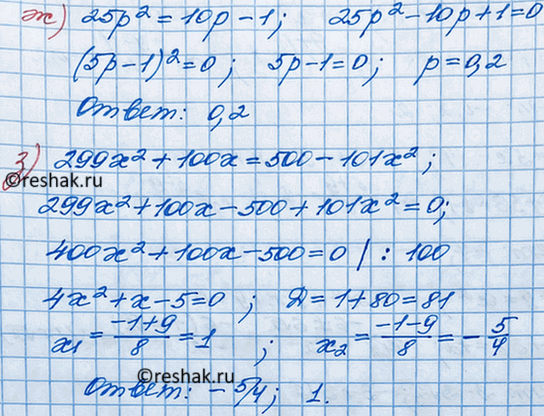 ж) 25p² = 10p - 1; 25p² - 10p + 1 = 0
(5p - 1)² = 0; 5p - 1 = 0; p = 0,2
Ответ: 0,2
з) 299x² + 100x = 500 - 101x²;
©reshak.ru
299x² + 100x - 500 + 101x² = 0;
400x² + 100x - 500 = 0 | : 100
4x² + x - 5 = 0; D = 1 + 80 = 81
x₁ = (-1+9)/8 = 1; x₂ = (-1-9)/8 = -5/4
©reshak.ru
Ответ: -5/4; 1.